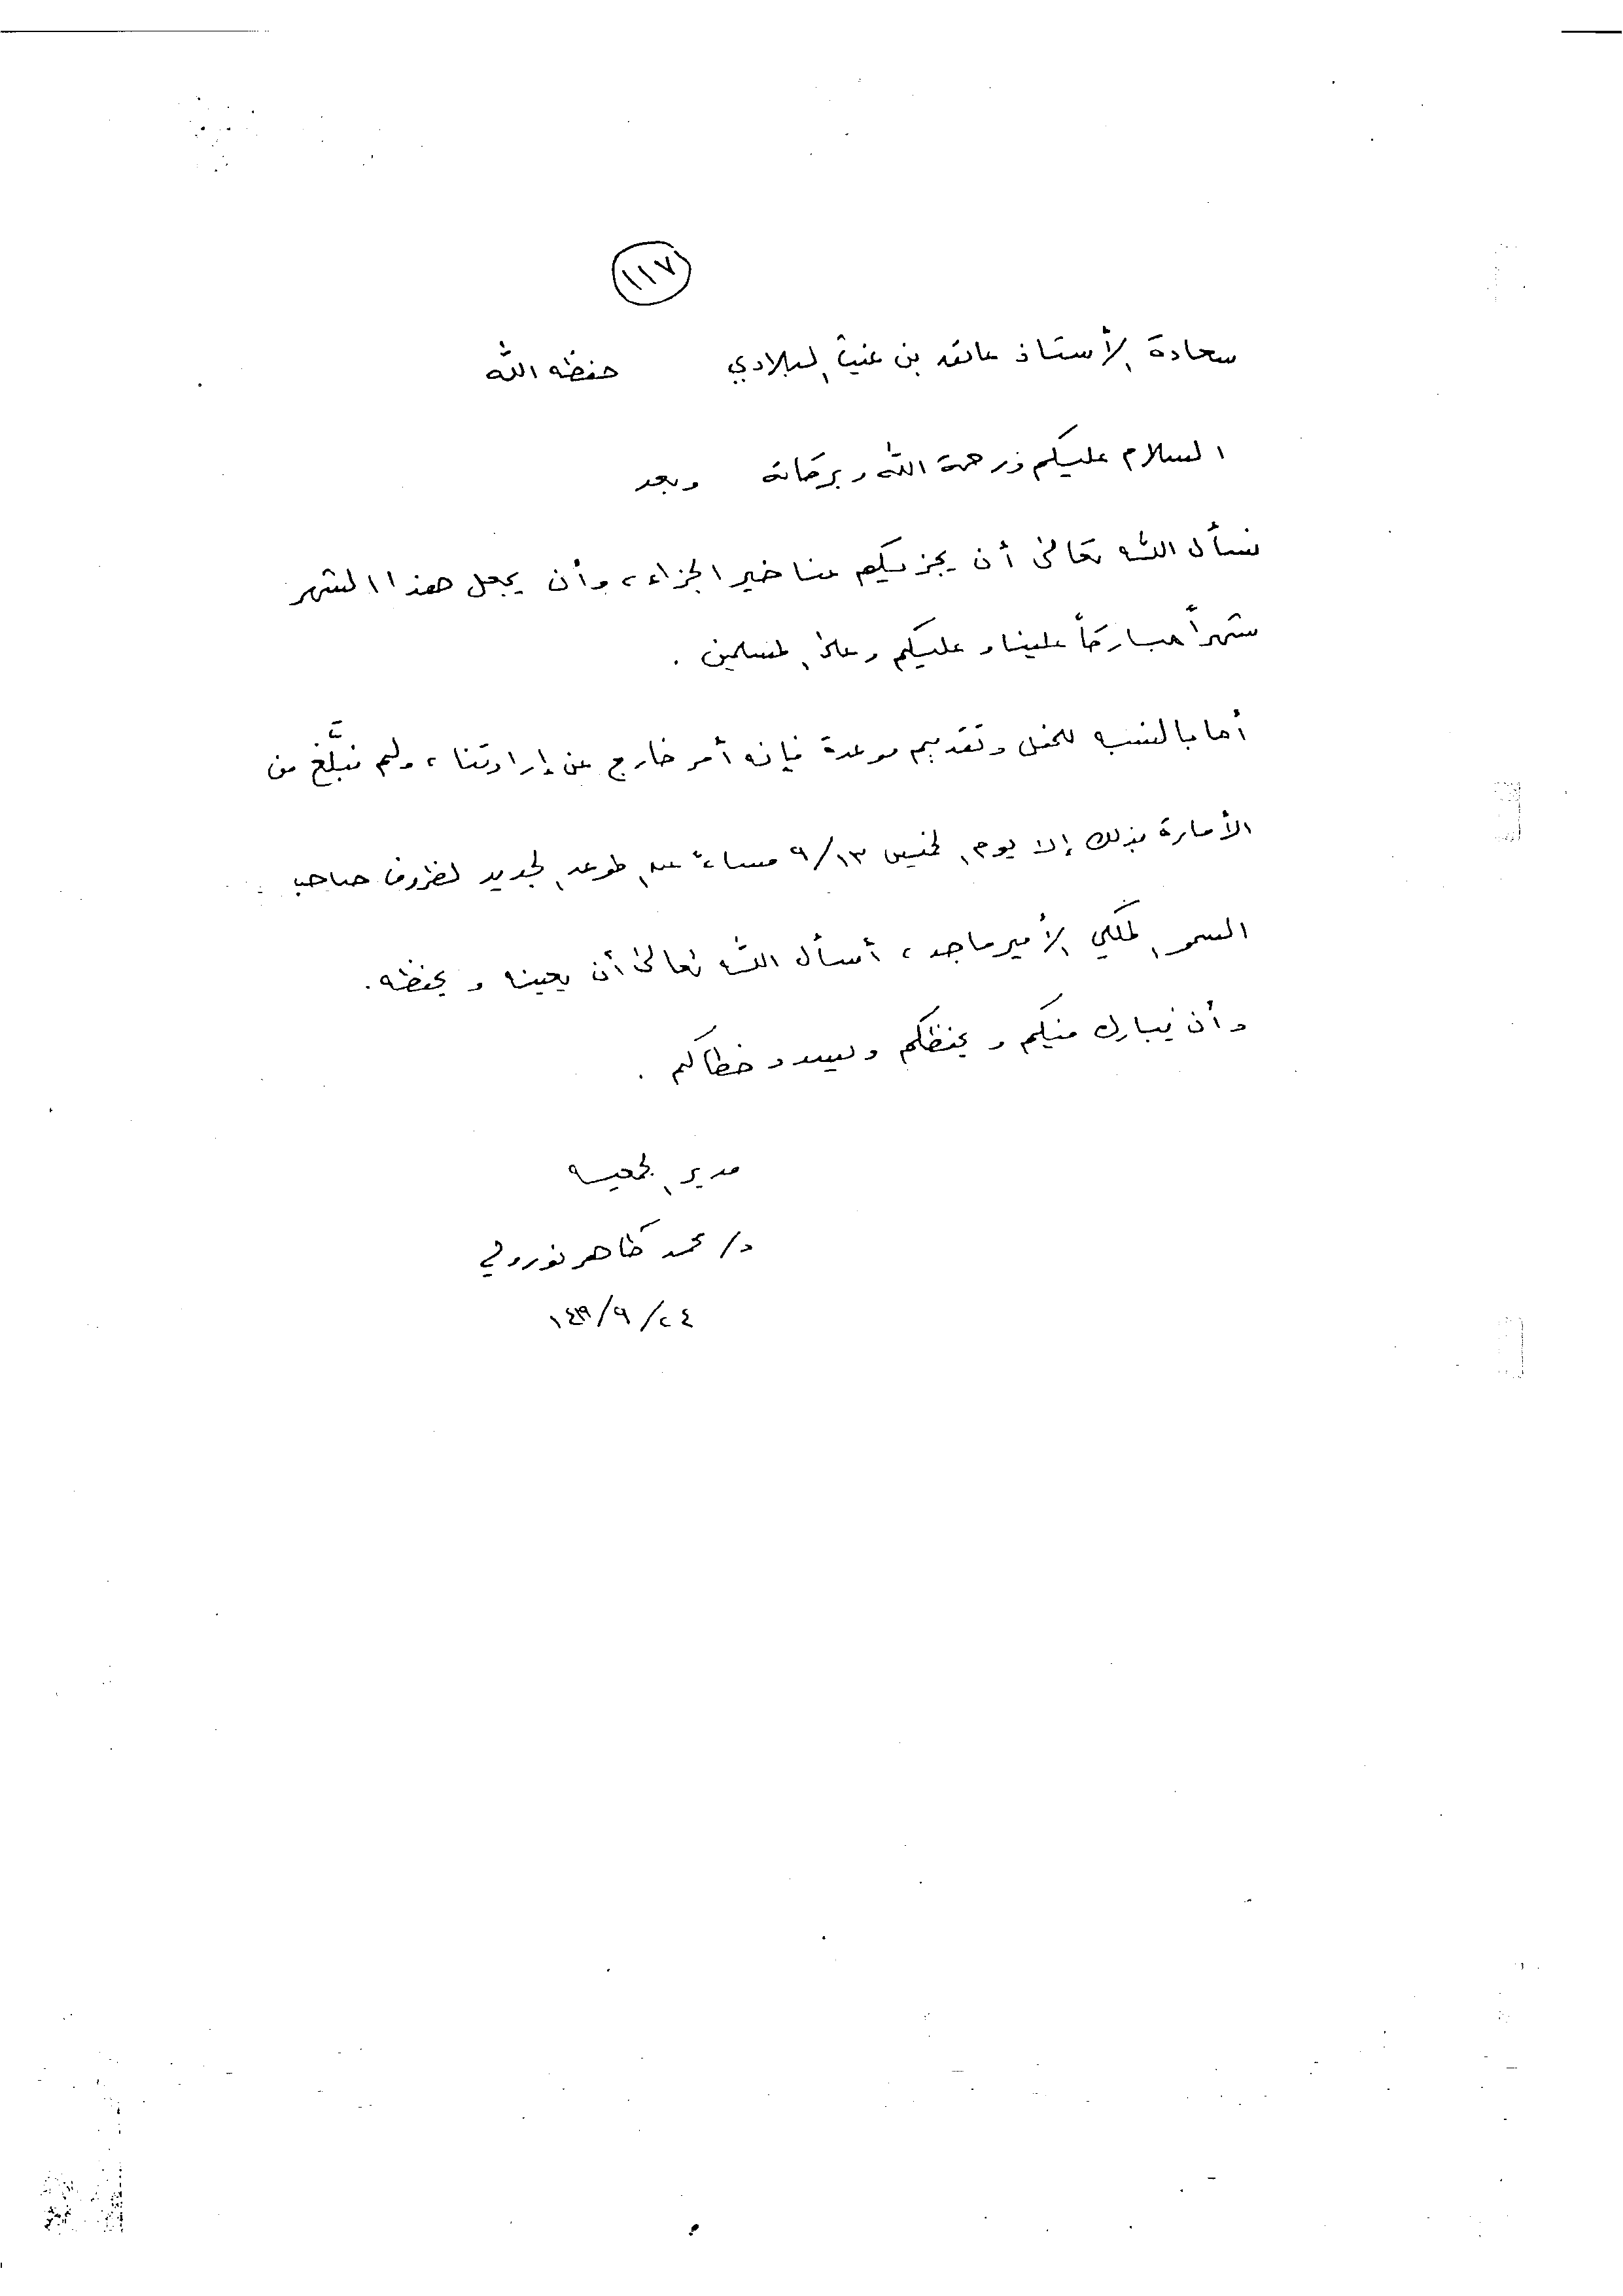 ١١٧
سعادة الأستاذ عاتق بن غيث البلادي حفظه الله
السلام عليكم ورحمة الله وبركاته وبعد
نسأل الله تعالى أن يجزيكم عنا خير الجزاء، وأن يجعل هذا الشهر
شهراً مباركاً علينا وعليكم وعلى المسلمين .
أما بالنسبه للحفل وتقديم موعدة فإنه أمر خارج عن إرادتنا، ولم نبلَّغ من
الأمارة بذلك إلا يوم الخميس ٩/١٣ مساءً عن الموعد الجديد لظروف صاحب
السمو الملكي الأمير ماجد، أسأل الله تعالى أن يعينه و يحفظه .
وأن يبارك فيكم و يحفظكم ويسدد خطاكم .
مدير الجمعيه
د/ محمد طاهر نورولي
٢٤/٩/